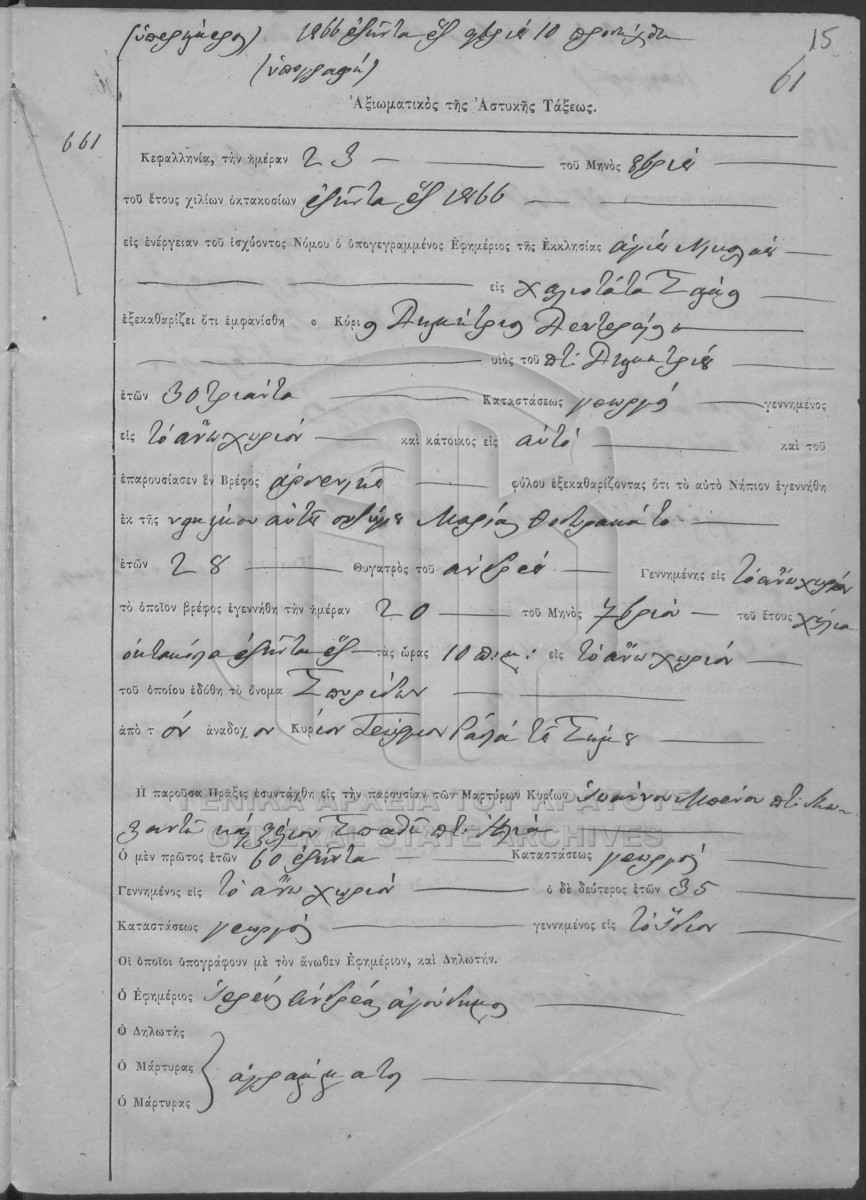 (ὑπερήμερος) 1866 ἑξῆντα ἓξ 9βρίου 10
15
(ὑπογραφὴ)
61
Ἀξιωματικὸς τῆς Ἀστυκῆς Τάξεως.
661
Κεφαλληνίᾳ, τὴν ἡμέραν 23 — τοῦ Μηνὸς 8βρίου
τοῦ ἔτους χιλίων ὀκτακοσίων ἑξῆντα ἓξ 1866
εἰς ἐνέργειαν τοῦ ἰσχύοντος Νόμου ὁ ὑπογεγραμμένος Ἐφημέριος τῆς Ἐκκλησίας ἁγίου Νικολάου
εἰς χαλιοτάτα Σάμης
ἐξεκαθαρίζει ὅτι ἐμφανίσθη ο Κύριος Δημήτριος
υἱὸς τοῦ ποτὲ Δημητρίου
ἐτῶν 30 τριάντα Καταστάσεως γεωργὸς γεννημένος
εἰς τὸ ἄνω χωρίον καὶ κάτοικος εἰς αὐτό καὶ τοῦ
ἐπαρουσίασεν ἓν Βρέφος ἀρσενικοῦ φύλου ἐξεκαθαρίζοντας ὅτι τὸ αὐτὸ Νήπιον ἐγεννήθη
ἐκ τῆς νομίμου αὐτοῦ συζύγου Μαρίας
ἐτῶν 28 Θυγατρὸς τοῦ ἀνδρέα Γεννημένης εἰς τὸ ἄνω χωρίον
τὸ ὁποῖον βρέφος ἐγεννήθη τὴν ἡμέραν 20 τοῦ Μηνὸς 7βρίου τοῦ ἔτους χίλια
ὀκτακόσια ἑξῆντα ἓξ τὰς ὥρας 10 π.μ. εἰς τὸ ἄνω χωρίον
τοῦ ὁποίου ἐδόθη τὸ ὄνομα Σπυρίδων
ἀπὸ τὸν ἀνάδοχον Κυρίον Γεώργιον τοῦ
Ἡ παροῦσα Πρᾶξις ἐσυντάχθη εἰς τὴν παρουσίαν τῶν Μαρτύρων Κυρίων Ἰωάννου
Ὁ μὲν πρῶτος ἐτῶν 60 ἑξῆντα Καταστάσεως γεωργὸς
Γεννημένος εἰς τὸ ἄνω χωρίον ὁ δὲ δεύτερος ἐτῶν 35
Καταστάσεως γεωργὸς γεννημένος εἰς τὸ ἴδιον
Οἱ ὁποῖοι ὑπογράφουν μὲ τὸν ἄνωθεν Ἐφημέριον, καὶ Δηλωτήν.
Ὁ Ἐφημέριος Ἱερεὺς Ἀνδρέας
Ὁ Δηλωτὴς
Ὁ Μάρτυρας ἀγράμματοι
Ὁ Μάρτυρας
ΓΕΝΙΚΑ ΑΡΧΕΙΑ ΤΟΥ ΚΡΑΤΟΥΣ
GENERAL STATE ARCHIVES